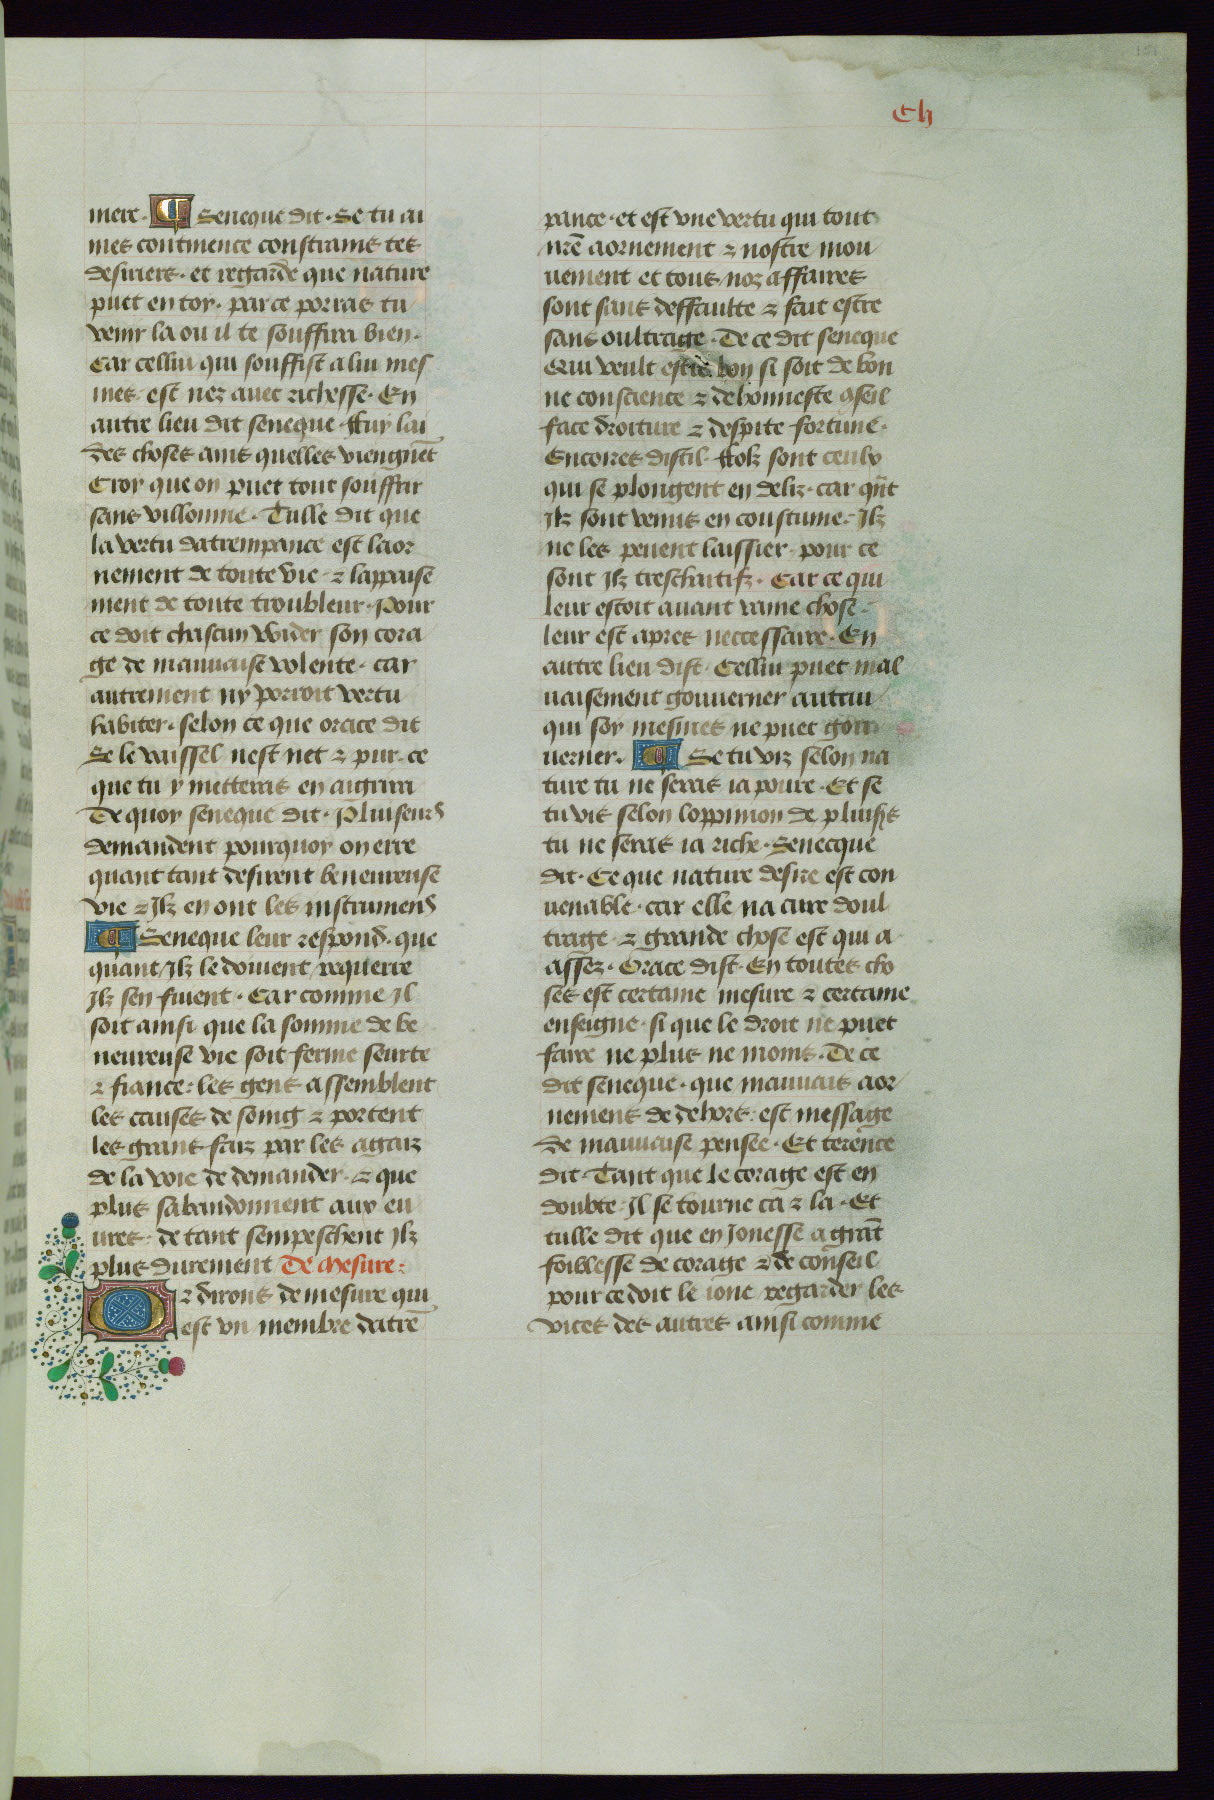 Ch
mere · ¶ Seneque dit · Se tu ai
mes continence constrains tes
desiriers · et regarde que nature
puet en toy · par ce porras tu
venir la ou il te souffira bien ·
Car cellui qui souffist a lui mes
mes est nez auec richesse · En
autre lieu dit seneque · ffuy lai
des choses ains quelles viengnēt
Croy que on puet tout souffrir
sans villonnie · Tulle dit que
la vertu datrempance est laor
nement de toute vie · ⁊ lappaise
ment de toute troubleur · Pour
ce doit chascun wider son cora
ge de mauuaise volente · car
autrement ny porroit vertu
habiter · selon ce que orace dit
Se le vaissel nest net ⁊ pur · ce
que tu y metteras en aigrira
De quoy seneque dit · Pluiseurs
demandent pourquoy on erre
quant tant desirent beneureuse
vie ⁊ Ilz en ont les instrumens
¶ Seneque leur respond · que
quant Ilz le doiuent requerre
Ilz sen fuient · Car comme Il
soit ainsi que la somme de be
neureuse vie soit ferme seurte
⁊ fiance : les gens assemblent
les causes de soing ⁊ portent
les grans faiz par les agaiz
de la voie de demander · ⁊ que
plus sabandonnent aux eu
ures · de tant sempeschent Ilz
plus durement De Mesure :
Or dirons de mesure qui
est vn membre datrē
pance · et est vne vertu qui tout
nr̄e aornement ⁊ nostre mou
uement et tous noz affaires
sont sans deffaulte ⁊ fait estre
sans oultrage · De ce dit seneque
Qui veult estre bon si soit de bon
ne conscience ⁊ de honneste 9seil
face droiture ⁊ despite fortune ·
Encores dist il · ffolz sont ceulx
qui se plongent en deliz · car qn̄t
Ilz sont venus en coustume · Ilz
ne les peuent laissier · pour ce
sont Ilz treschaitifz · Car ce qui
leur estoit auant vaine chose ·
leur est apres neccessaire · En
autre lieu dist · Cellui puet mal
uaisement gouuerner autrui
qui soy mesmes ne puet gou
uerner · ¶ Se tu viz selon na
ture tu ne seras ia poure · Et se
tu vis selon loppinion de pluis's
tu ne seras ia riche · Senecque
dit · Ce que nature desire est con
uenable · car elle na cure doul
trage · ⁊ grande chose est qui a
assez · Orace dist · En toutes cho
ses est certaine mesure ⁊ certaine
enseigne · si que le droit ne puet
faire ne plus ne moins · De ce
dit seneque · que mauuais aor
nemens de dehors : est message
de mauuaise pensee · Et terence
dit · Tant que le corage est en
doubte · Il se tourne ca ⁊ la · Et
tulle dit que en Jonesse a grāt
foiblesse de corage ⁊ de conseil
pour ce doit le ione regarder les
vices des autres ainsi comme